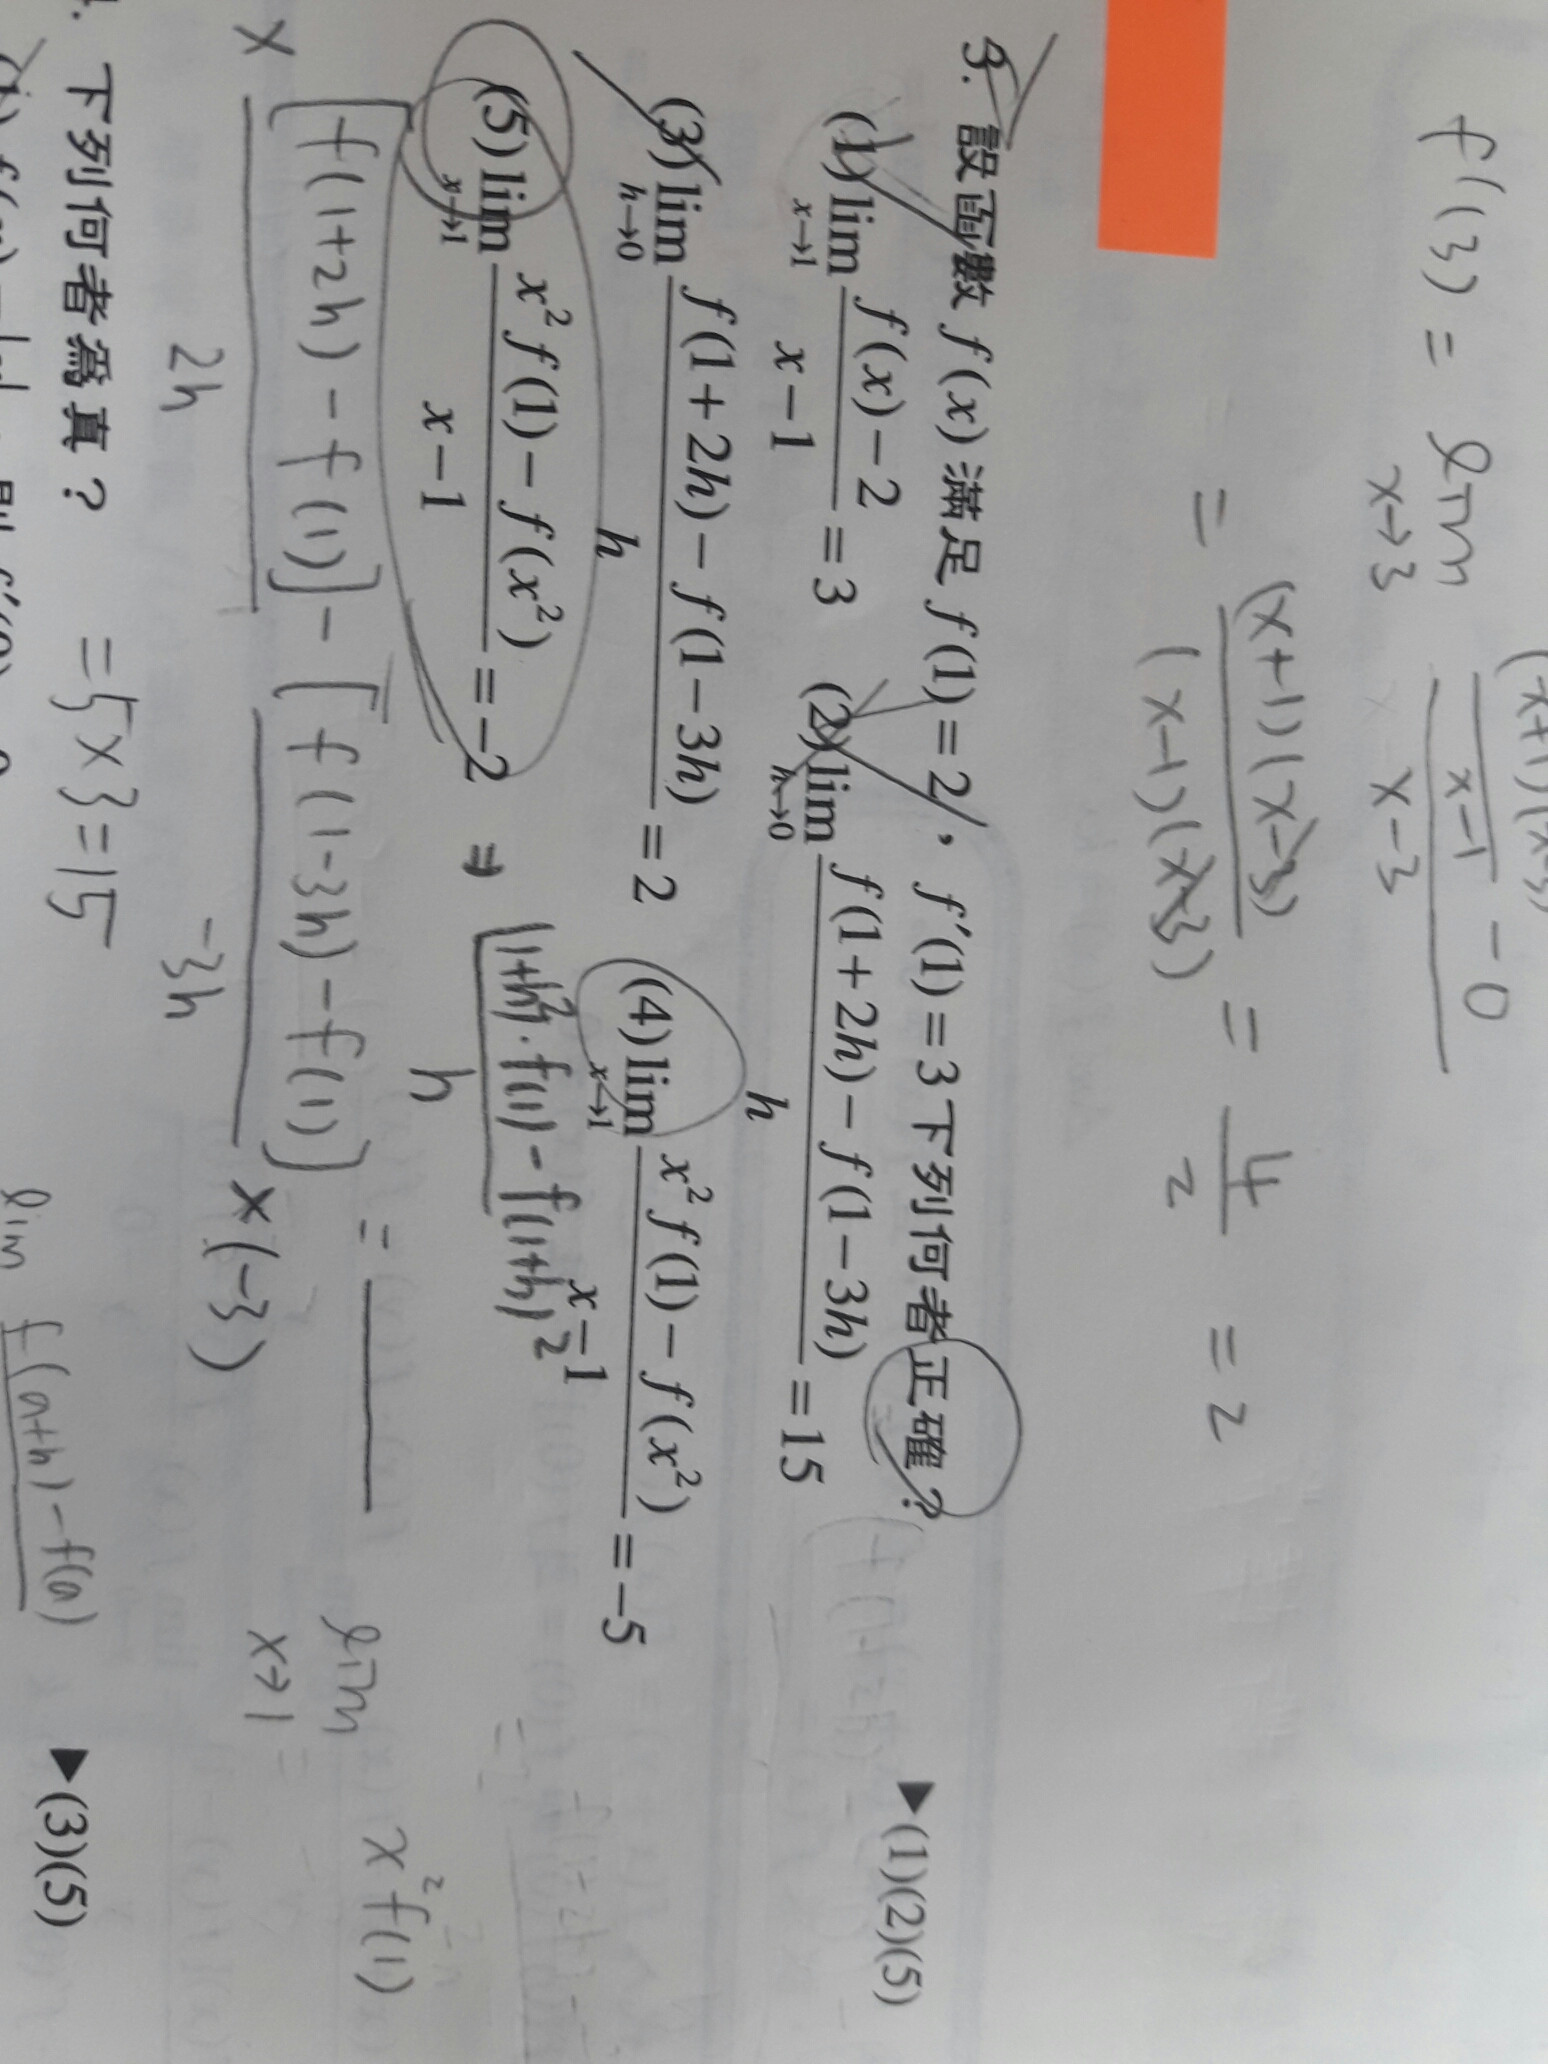 (x+1)(x-3)
f'(3) = lim x→3 x-1 - 0
x-3
= (x+1)(x-3) / (x-1)(x-3) = 4/2 = 2
3. 設函數 f(x) 滿足 f(1)=2,f'(1)=3 下列何者正確? ▶(1)(2)(5)
(1) lim x→1 f(x)-2 / x-1 = 3 (2) lim h→0 f(1+2h)-f(1-3h) / h = 15
(3) lim h→0 f(1+2h)-f(1-3h) / h = 2 (4) lim x→1 x²f(1)-f(x²) / x-1 = -5
(5) lim x→1 x²f(1)-f(x²) / x-1 = -2 ⇒ (1+h)²·f(1)-f(1+h)² / h
[f(1+2h)-f(1)] - [f(1-3h)-f(1)] =
2h -3h ×(-3)
lim x→1 x²f(1)
=5×3=15
lim f(a+h)-f(a)
下列何者為真? ▶(3)(5)